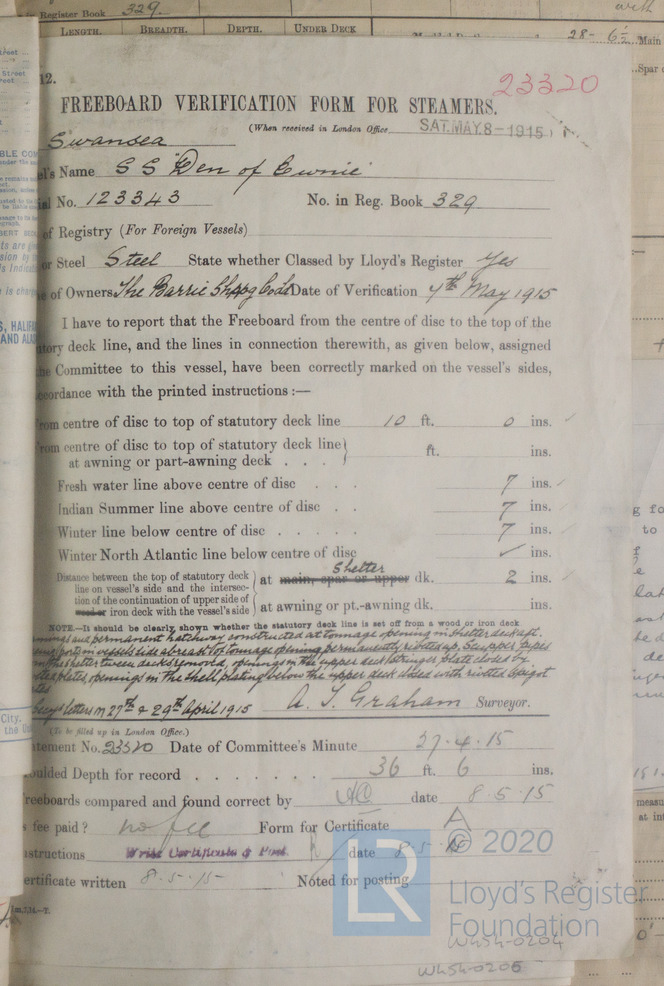 Register Book 329.
LENGTH. BREADTH. DEPTH. UNDER DECK
28- 6½
Main
Spar
12.
23320
FREEBOARD VERIFICATION FORM FOR STEAMERS.
(When received in London Office SAT. MAY. 8 - 1915)
Swansea
Name SS "Den of Ewnie"
No. 123343 No. in Reg. Book 329
of Registry (For Foreign Vessels)
or Steel Steel State whether Classed by Lloyd's Register Yes
of Owners The Barrie Shppg Co Ld Date of Verification 4th May 1915
I have to report that the Freeboard from the centre of disc to the top of the
deck line, and the lines in connection therewith, as given below, assigned
Committee to this vessel, have been correctly marked on the vessel's sides,
with the printed instructions :—
centre of disc to top of statutory deck line 10 ft. 0 ins.
centre of disc to top of statutory deck line ft. ins.
at awning or part-awning deck . . .
Fresh water line above centre of disc . . . 7 ins.
Indian Summer line above centre of disc . . 7 ins.
Winter line below centre of disc . . . . . 7 ins.
Winter North Atlantic line below centre of disc ✓ ins.
Distance between the top of statutory deck
line on vessel's side and the intersec-
tion of the continuation of upper side of
wood or iron deck with the vessel's side
at main, spar or upper Shelter dk. 2 ins.
at awning or pt.-awning dk. ins.
NOTE.—It should be clearly shown whether the statutory deck line is set off from a wood or iron deck
and permanent hatchway constructed at tonnage opening in shelter deck aft.
ports in vessels side abreast of tonnage opening permanently riveted up. Scupper pipes
in the shelter tween decks removed, openings in the upper deck stringer plate closed by
plates, openings in the shell plating below the upper deck closed with riveted spigot
letters 27th & 29th April 1915 A. T. Graham Surveyor.
(To be filled up in London Office.)
No. 23320 Date of Committee's Minute 27.4.15
Depth for record . . . . . . . 36 ft. 6 ins.
compared and found correct by date 8.5.15
fee paid? no fee Form for Certificate A
Write Certificate & Post date 8.5.15
written 8.5.15 Noted for posting
© 2020
LR
Lloyd's Register
Foundation
W454-0204
W454-0206